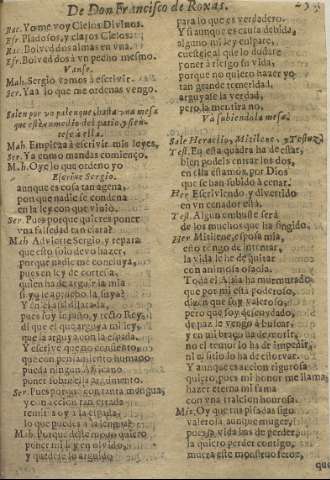 De Don Francisco de Roxas.
Rac. Yo me voy Cielos Divinos.
Esf. Piadosos, y claros Cielos.
Rac. Bolveddos almas en vna.
Esf. Bolveddos à vn pecho mesmo.
Vanse.
Mah. Sergio vamos à escrivir.
Ser. Ya à lo que me ordenas vengo.
Salen por vn palenque, hasta una mesa
que està en medio del patio, y sien-
tese à ella.
Mah. Empieza à escrivir mis leyes,
Ser. Ya como mandas comienço.
Mah. Oye lo que ordeno yo
Escrive Sergio.
aunque es cosa tan agena,
por que nadie se condena
en la ley con que vivio.
Ser. Pues porque quieres poner
vna falsedad tan clara?
Mah. Advierte Sergio, y repara
que esto solo devo hazer,
porque nadie me concluya,
pues en ley de cortesia,
quien ha de arguir la mia
si yo le apruebo la suya?
pues soy
di que el que arguya mi ley,
que la arguya con la espada.
Y escrive que no consiento,
que con pensamiento humano
pueda ningun
poner sobre ella argumento.
Ser. Pues porque con tanta mengua,
y con accion tan errada
remites oy à la espada,
lo que puedes à la lengua?
Mah. Porque deste modo quiero
poner miedo y en olvido,
y quede lo arguido
para lo que es verdadero.
Y si aunque es causa debida,
alguno mi ley culpare,
castiguese al que lo dudare
poner à riesgo su vida,
porque no quiero hazer yo
tan grande temeridad,
arguyase la verdad,
pero la mentira no.
Va subiendo la mesa.
Sale Heraclio, Mitilene, y Testuz
Test. En esta quadra ha de estar,
bien podeis entrar los dos,
en ella estamos por Dios
que se han subido à cenar.
Her. Escriviendo, y divertido
en vn cenador està.
Test. Algun embuste serà
de los muchos que ha fingido.
Her. Mitilene, esposa mia,
esto tengo de intentar,
la vida le he de quitar
con animosa osadia.
Toda el Asia ha murmurado
que por mi esta poderoso,
dizen que soy valeroso,
pero que soy desdichado;
de paz le vengo à buscar,
y en mi braço ha de morir,
no el temor lo ha de impedir,
ni el sitio lo ha de estorvar.
Y aunque es accion rigurosa
quiero, pues mi honor me llama,
hazer eterna mi fama
con vna traicion honrosa.
Mit. Oy que tus pisadas sigo
valerosa, aunque muger,
pues vida has de perder,
la quiero perder contigo,
muera este monstruo feroz,
que